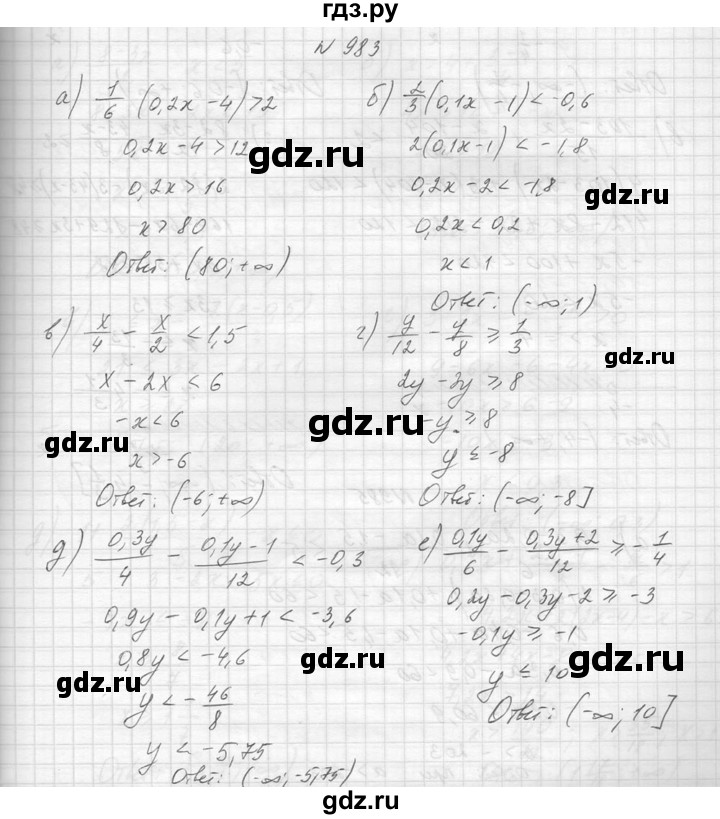 гдз.ру
N 983
а) 1/6 (0,2x - 4) > 2
0,2x - 4 > 12
0,2x > 16
x > 80
Ответ: (80; +∞)
б) 2/3 (0,1x - 1) < -0,6
2(0,1x - 1) < -1,8
0,2x - 2 < -1,8
0,2x < 0,2
x < 1
Ответ: (-∞; 1)
в) x/4 - x/2 < 1,5
x - 2x < 6
-x < 6
x > -6
Ответ: (-6; +∞)
г) y/12 - y/8 ≥ 1/3
2y - 3y ≥ 8
-y ≥ 8
y ≤ -8
Ответ: (-∞; -8]
д) 0,3y/4 - (0,1y - 1)/12 < -0,3
0,9y - 0,1y + 1 < -3,6
0,8y < -4,6
y < -46/8
y < -5,75
Ответ: (-∞; -5,75)
е) 0,1y/6 - (0,3y + 2)/12 ≥ -1/4
0,2y - 0,3y - 2 ≥ -3
-0,1y ≥ -1
y ≤ 10
Ответ: (-∞; 10]
gdz.ru
gdz.ru
gdz.ru
gdz.ru
gdz.ru
gdz.ru
gdz.ru
gdz.ru
gdz.ru
gdz.ru
gdz.ru